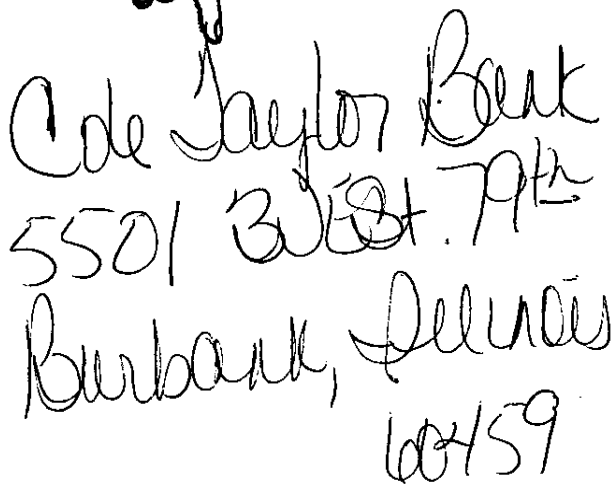 Cole Taylor Bank
5501 West. 79th
Burbank, Illinois
60459